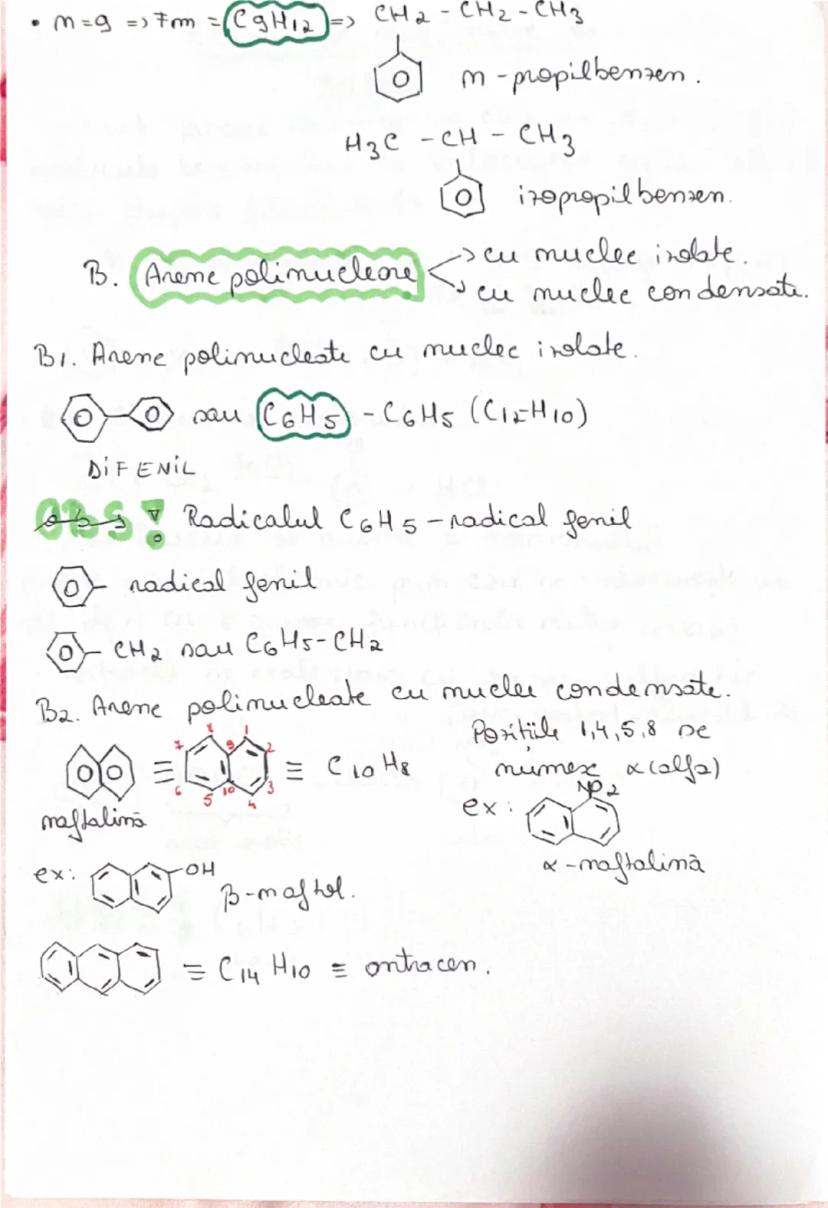 • n=9 => Fm = C9H12 => CH2 - CH2 - CH3
n-propilbenzen.
H3C - CH - CH3
izopropilbenzen.
B. Arene polinucleare → cu nuclee izolate.
→ cu nuclee condensate.
B1. Arene polinucleate cu nuclee izolate.
sau C6H5 - C6H5 (C12H10)
DIFENIL
OBS! Radicalul C6H5 - radical fenil
- radical fenil
- CH2 sau C6H5-CH2
B2. Arene polinucleate cu nuclee condensate.
≡ 1 2 3 4 5 6 7 8 9 10 ≡ C10H8
naftalină
Pozițiile 1,4,5,8 se
numesc α(alfa)
ex: NO2
α-naftalină
ex: -OH β-naftol.
≡ C14H10 ≡ antracen.